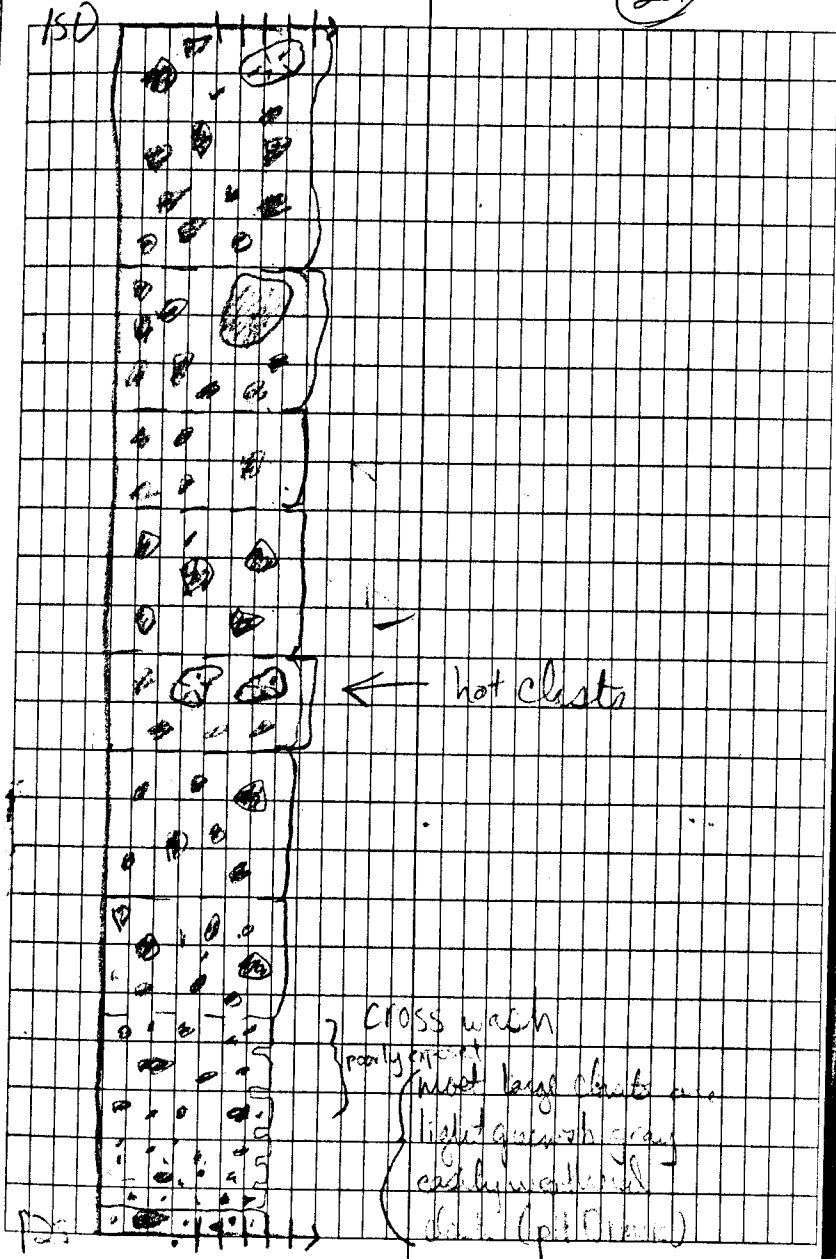 150
hot clasts
cross wash
poorly exposed
most large clasts
light greenish gray
easily weathered
125